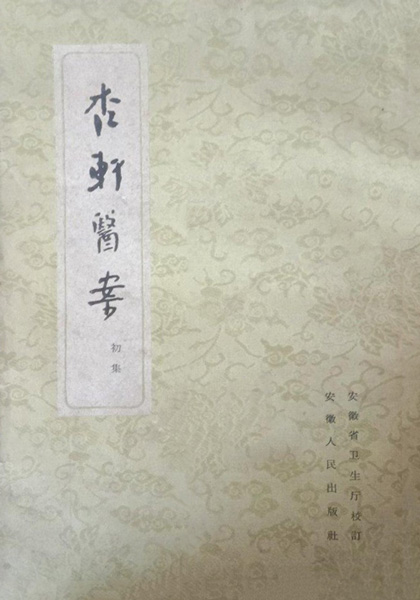 杏軒醫案
初集
安徽省卫生厅校訂
安徽人民出版社